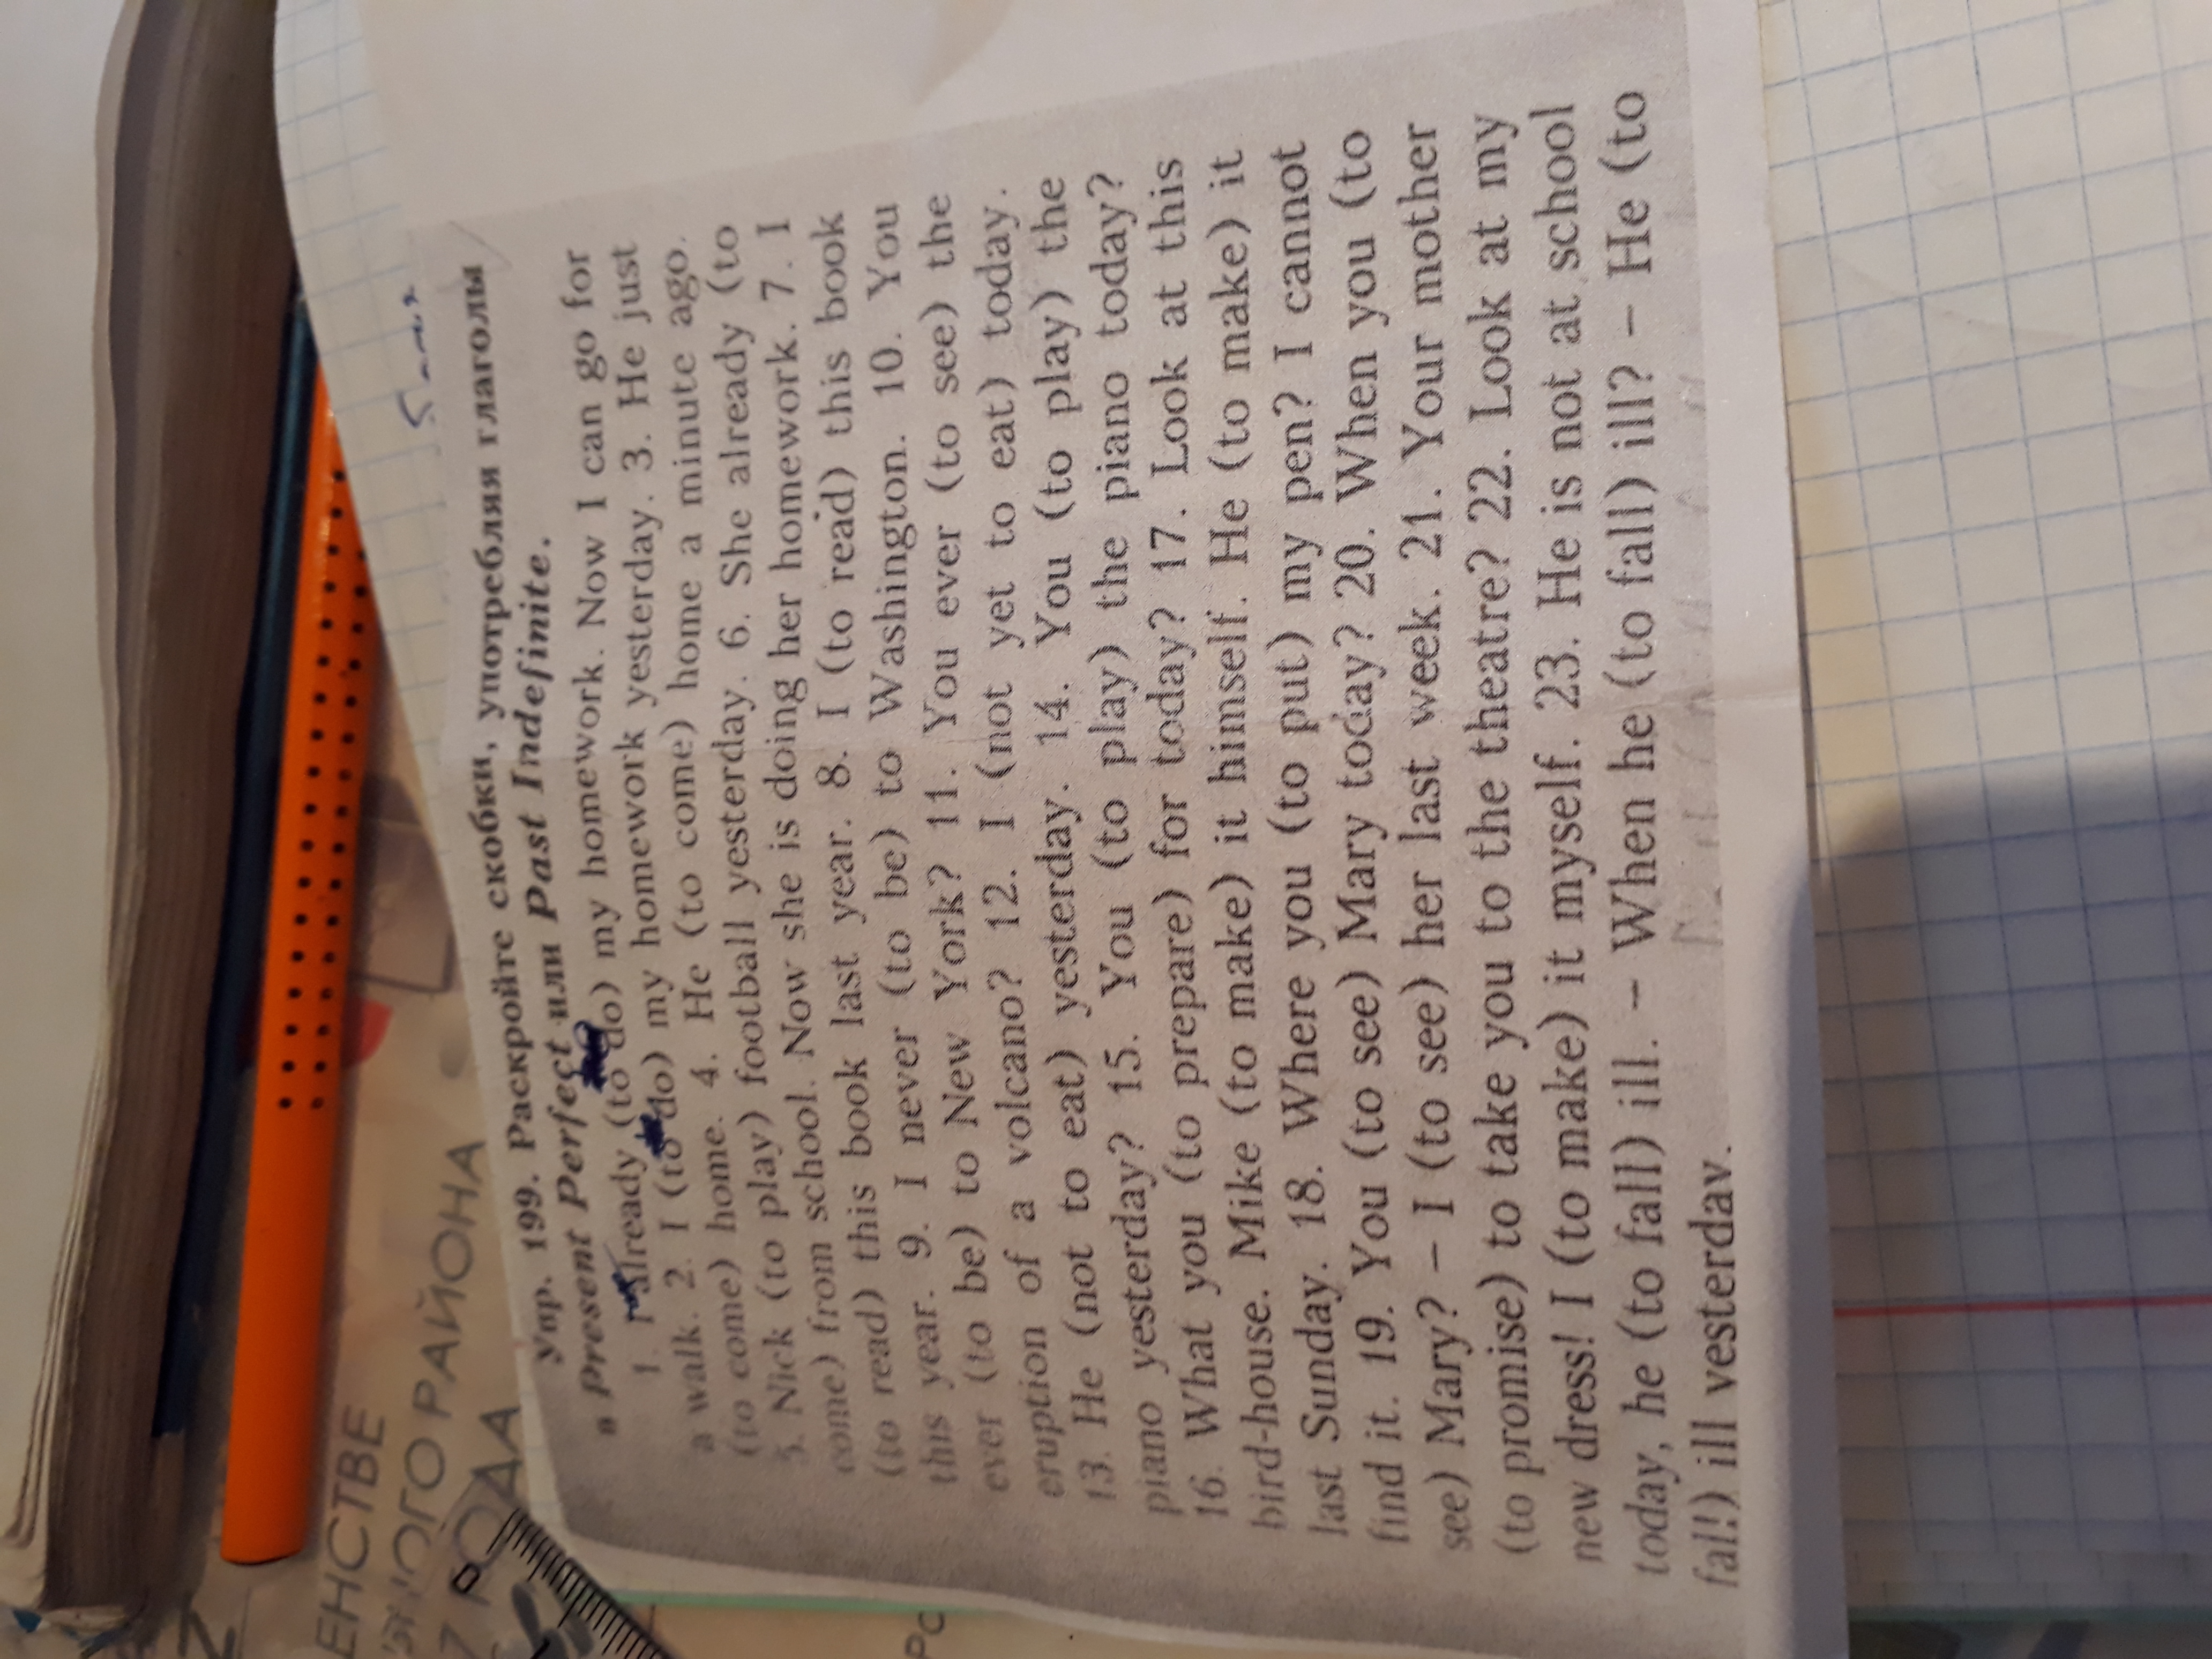 5
Упр. 199. Раскройте скобки, употребляя глаголы
в Present Perfect или Past Indefinite.
1. I already (to do) my homework. Now I can go for
a walk. 2. I (to do) my homework yesterday. 3. He just
(to come) home. 4. He (to come) home a minute ago.
5. Nick (to play) football yesterday. 6. She already (to
come) from school. Now she is doing her homework. 7. I
(to read) this book last year. 8. I (to read) this book
this year. 9. I never (to be) to Washington. 10. You
ever (to be) to New York? 11. You ever (to see) the
eruption of a volcano? 12. I (not yet to eat) today.
13. He (not to eat) yesterday. 14. You (to play) the
piano yesterday? 15. You (to play) the piano today?
16. What you (to prepare) for today? 17. Look at this
bird-house. Mike (to make) it himself. He (to make) it
last Sunday. 18. Where you (to put) my pen? I cannot
find it. 19. You (to see) Mary today? 20. When you (to
see) Mary? – I (to see) her last week. 21. Your mother
(to promise) to take you to the theatre? 22. Look at my
new dress! I (to make) it myself. 23. He is not at school
today, he (to fall) ill. – When he (to fall) ill? – He (to
fall) ill yesterday.
ЕНСТВЕ
НОГО РАЙОНА
7 РОДА
0
РС